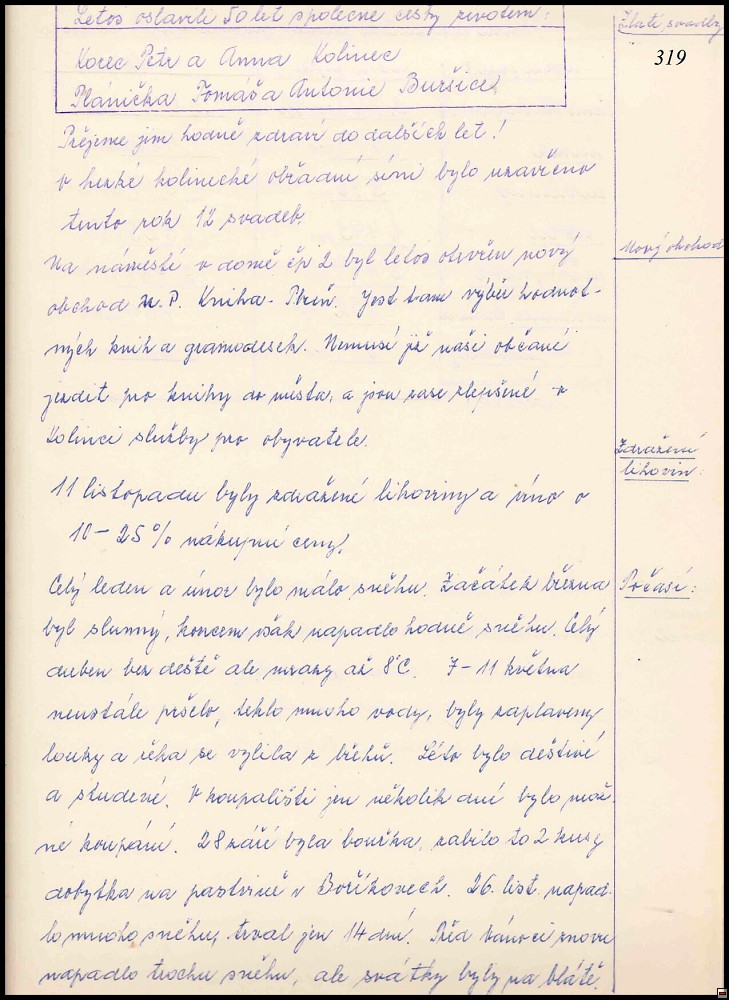 Letos oslavili 50 let společné cesty životem:
Zlaté svatby
319
Korec Petr a Anna Kolinec
Plánička Tomáš a Antonie Buršice
Přejeme jim hodně zdraví do dalších let!
V hezké kolinecké obřadní síni bylo uzavřeno
tento rok 12 svadeb.
Nový obchod
Na náměstí v domě čp 2 byl letos otevřen nový
obchod n. P. Kniha - Plzeň. Jest tam výběr hodnot-
ných knih a gramodesek. Nemusí již naši občané
jezdit pro knihy do města, a jsou zase zlepšené v
Kolinci služby pro obyvatele.
Zdražení
lihovin:
11 listopadu byly zdražené lihoviny a víno o
10 - 25 % nákupní ceny.
Počasí:
Celý leden a únor bylo málo sněhu. Začátek března
byl slunný, koncem však napadlo hodně sněhu. Celý
duben bez deště ale mrazy až 8°C. 7 - 11 května
neustále pršelo, teklo mnoho vody, byly zaplaveny
louky a řeka se vylila z břehů. Léto bylo deštivé
a studené. V koupališti jen několik dní bylo mož-
né koupání. 28 září byla bouřka, zabilo to 2 kusy
dobytka na pastvině v Boříkovech. 26. list. napad-
lo mnoho sněhu, trval jen 14 dní. Před Vánoci znovu
napadlo trochu sněhu, ale svátky byly na blátě.